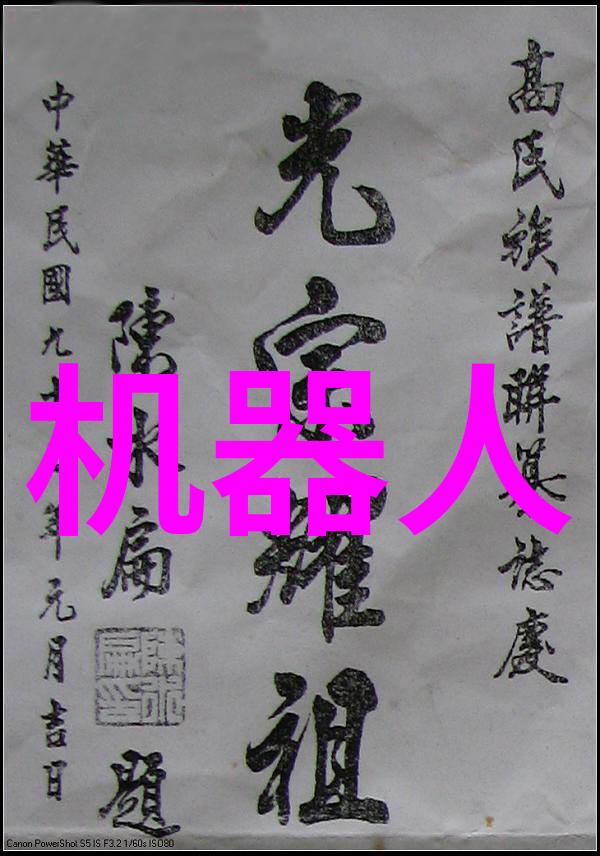 高氏族譜聯纂誌慶
光宗耀祖
陳水扁
陳水扁印
題
中華民國九十年元月吉日
机器人
Canon PowerShot S5 IS F3.2 1/60s ISO80